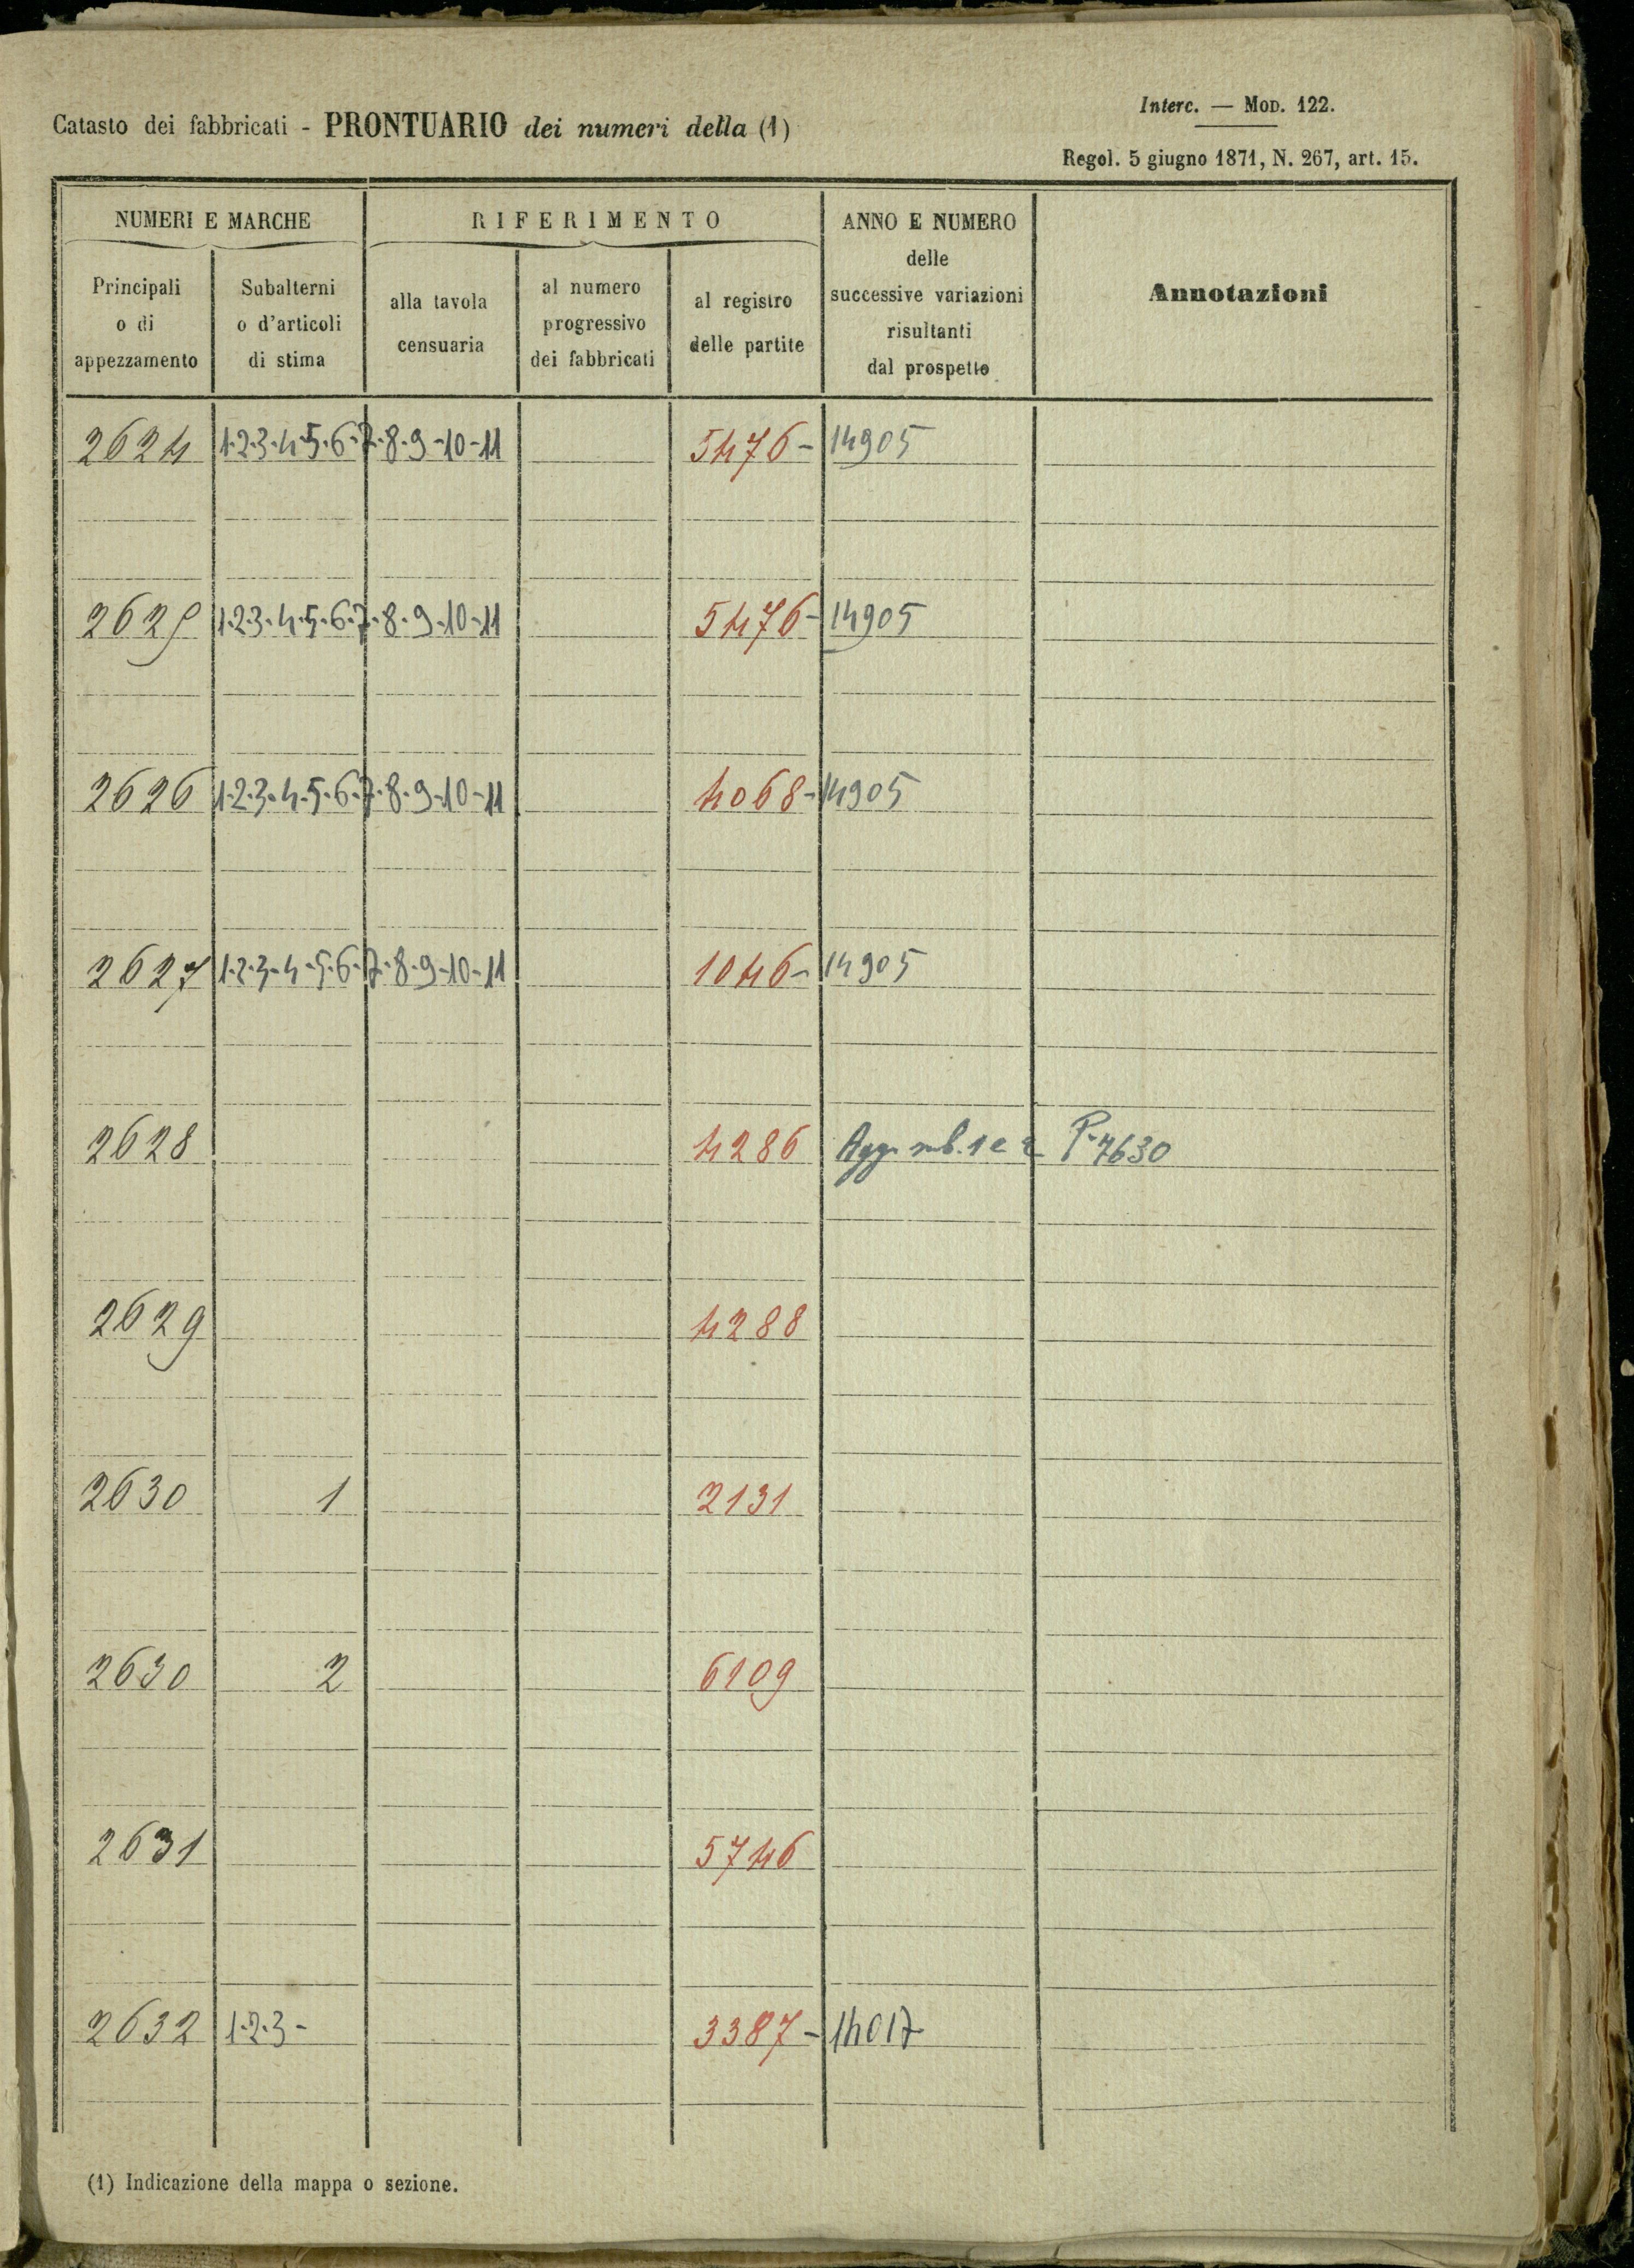 Interc. — Mod. 122.
Catasto dei fabbricati - PRONTUARIO dei numeri della (1)
Regol. 5 giugno 1871, N. 267, art. 15.
NUMERI E MARCHE RIFERIMENTO ANNO E NUMERO delle successive variazioni risultanti dal prospetto Annotazioni
Principali o di appezzamento Subalterni o d'articoli di stima alla tavola censuaria al numero progressivo dei fabbricati al registro delle partite
2624 1-2-3-4-5-6-7-8-9-10-11 5476- 14905
2625 1-2-3-4-5-6-7-8-9-10-11 5476- 14905
2626 1-2-3-4-5-6-7-8-9-10-11 4068- 14905
2627 1-2-3-4-5-6-7-8-9-10-11 1046- 14905
2628 4286 Agg. sub. 1 e 2 P. 7630
2629 4288
2630 1 2131
2630 2 6109
2631 5746
2632 1-2-3- 3387- 14017
(1) Indicazione della mappa o sezione.